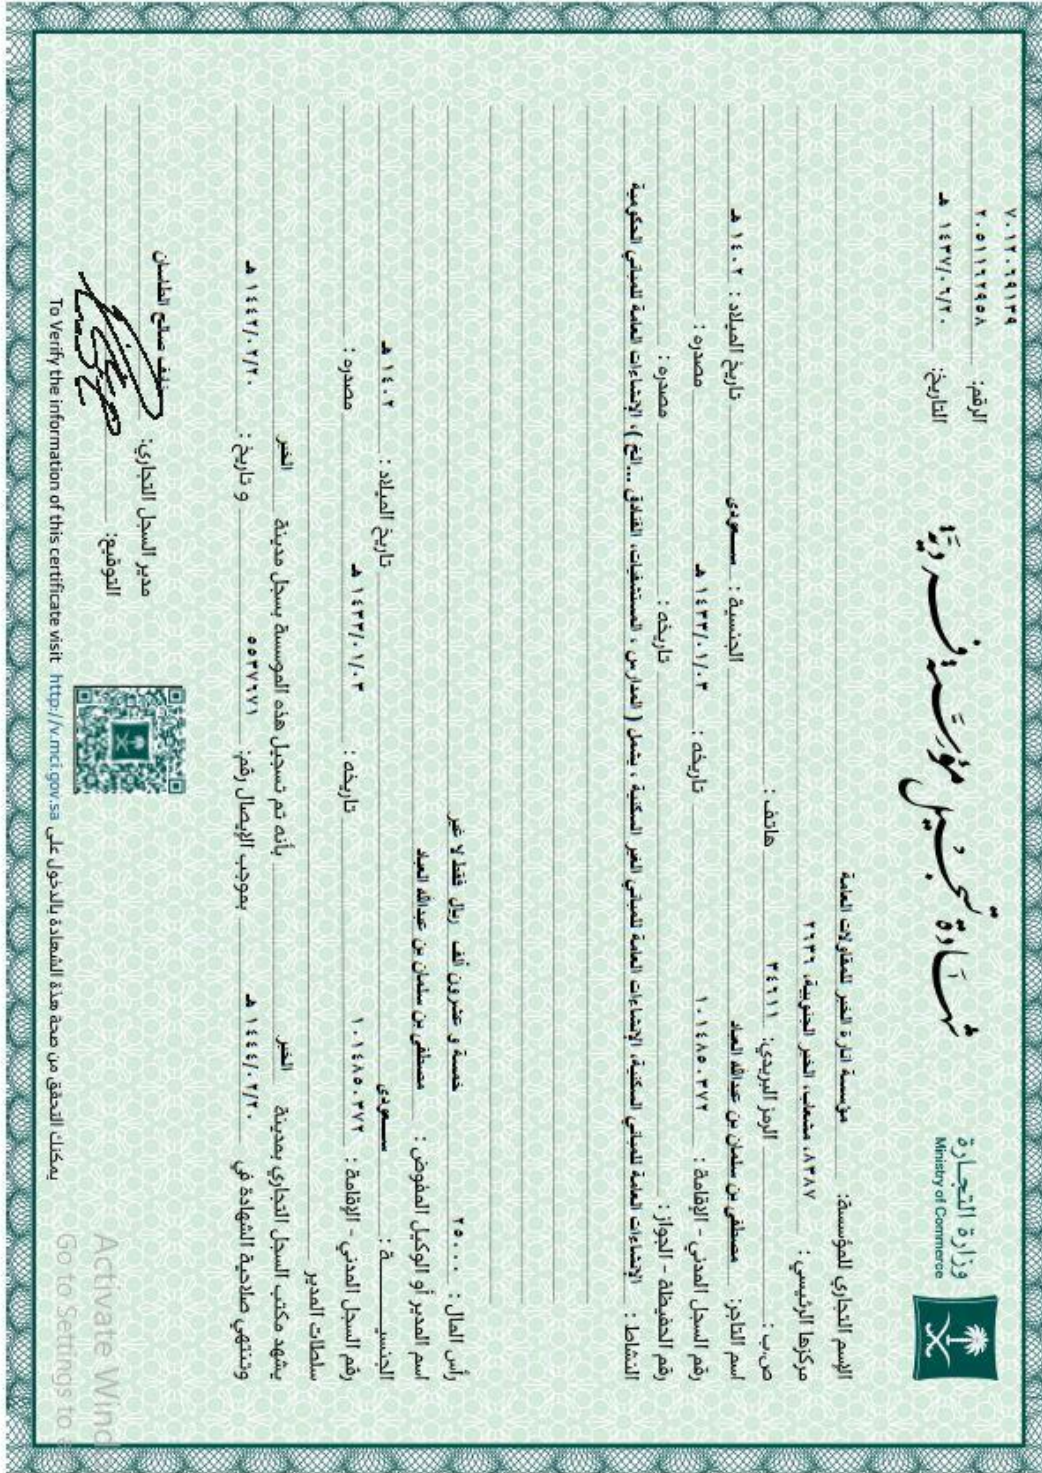 ٧٠١٢٠٦٩١٣٩
الرقم: ٢٠٥١١٦٢٩٥٨
التاريخ: ١٤٣٧/٠٦/٢٠ هـ
شهادة تسجيل مؤسسة فردية
وزارة التجارة
Ministry of Commerce
الإسم التجاري للمؤسسة: مؤسسة انارة الخبر للمقاولات العامة
مركزها الرئيسي: ٨٣٨٧، مشعاب، الخبر الجنوبية، ٢٦٣٦
ص.ب: الرمز البريدي: ٣٤٦١١ هاتف:
اسم التاجر: مصطفى بن سلمان بن عبدالله العباد الجنسية: سعودى تاريخ الميلاد: ١٤٠٢ هـ
رقم السجل المدني - الإقامة: ١٠١٤٨٥٠٣٧٢ تاريخه: ١٤٣٣/٠١/٠٣ هـ مصدره:
رقم الحفيظة - الجواز: تاريخه: مصدره:
النشاط: الإنشاءات العامة للمباني السكنية، الإنشاءات العامة للمباني الغير السكنية ، يشمل ( المدارس ، المستشفيات، الفنادق ...الخ )، الإنشاءات العامة للمباني الحكومية
رأس المال: ٢٥٠٠٠ خمسة و عشرون ألف ريال فقط لا غير
اسم المدير أو الوكيل المفوض: مصطفى بن سلمان بن عبدالله العباد
الجنسيـــــة: سعودى تاريخ الميلاد: ١٤٠٢ هـ
رقم السجل المدني - الإقامة: ١٠١٤٨٥٠٣٧٢ تاريخه: ١٤٣٣/٠١/٠٣ هـ مصدره:
سلطات المدير
يشهد مكتب السجل التجاري بمدينة الخبر بأنه تم تسجيل هذه الموسسة بسجل مدينة الخبر
وتنتهي صلاحية الشهادة في ١٤٤٤/٠٢/٢٠ هـ بموجب الإيصال رقم: ٥٥٣٧٦٧١ و تاريخ: ١٤٤٢/٠٢/٢٠ هـ
مدير السجل التجاري: صالح الطاسان
التوقيع:
يمكنك التحقق من صحة هذة الشهادة بالدخول على http://v.mci.gov.sa To Verify the information of this certificate visit
Activate Wind
Go to Settings to a